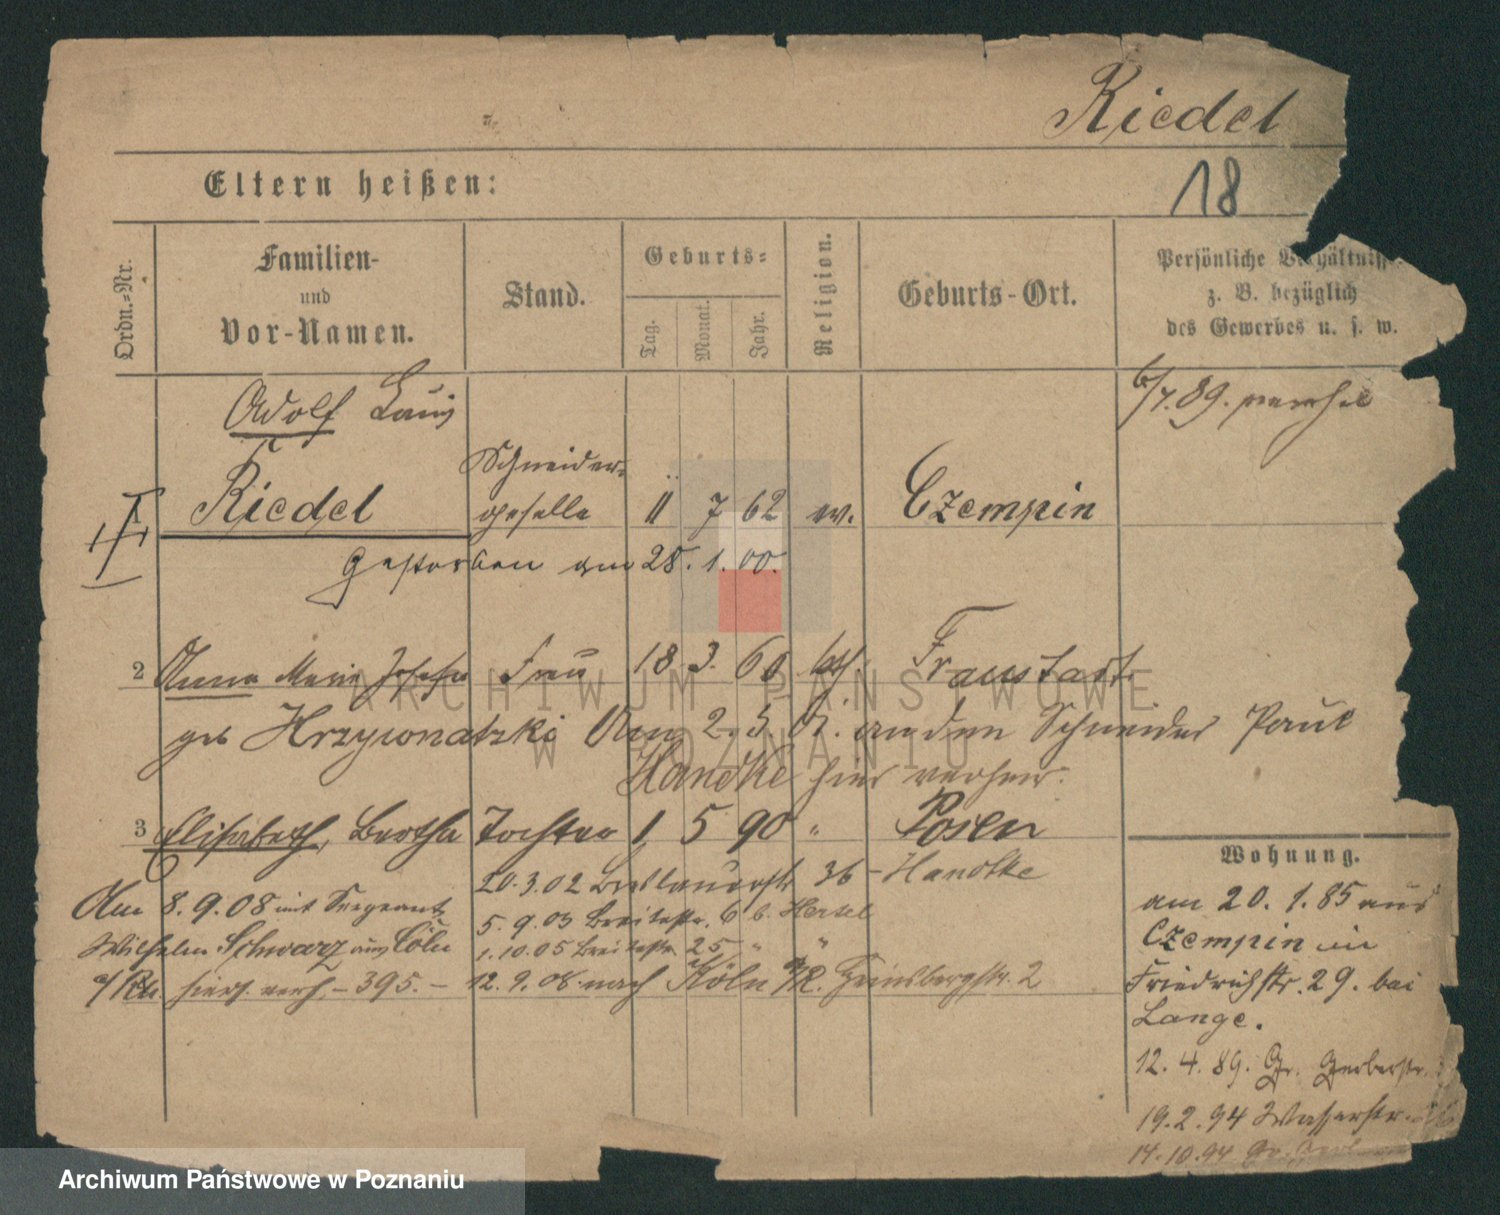 Riedel
18
Eltern heißen:
Ordn.-Nr.
Familien-
und
Vor-Namen.
Stand.
Geburts-
Tag.
Monat.
Jahr.
Religion.
Geburts-Ort.
Persönliche Verhältnisse
z. B. bezüglich
des Gewerbes u. s. w.
Adolf Louis
Riedel
Schneider-
geselle
11 7 62 ev. Czempin
6/7.89. verehel
Gestorben am 28. 1. 00.
2 Anna Marie Josefa Frau 18 3. 60 kath. Fraustadt
geb Hrzywonatzki Am 2. 5. 01. an den Schneider Paul
Handke hier verheir.
3 Elisabeth, Bertha Tochter 1 5 90 " Posen
20.3.02 Breslauerstr 36 - Handke
Am 8.9.08 mit Sergeant
5.9.03 Breitestr. 6 b. Hertel
Wilhelm Schwarz aus Cöln
1.10.05 Breitestr. 25 " "
a/Rh hiers. verh. - 395. -
12.9.08 nach Köln a/R. 2
Wohnung.
am 20. 1. 85 aus
Czempin in
Friedrichstr. 29. bei
Lange.
12. 4. 89. Gr. Gerberstr.
19.2.94 Wasserstr.
14.10.94 Gr.
ARCHIWUM PAŃSTWOWE
W POZNANIU
Archiwum Państwowe w Poznaniu